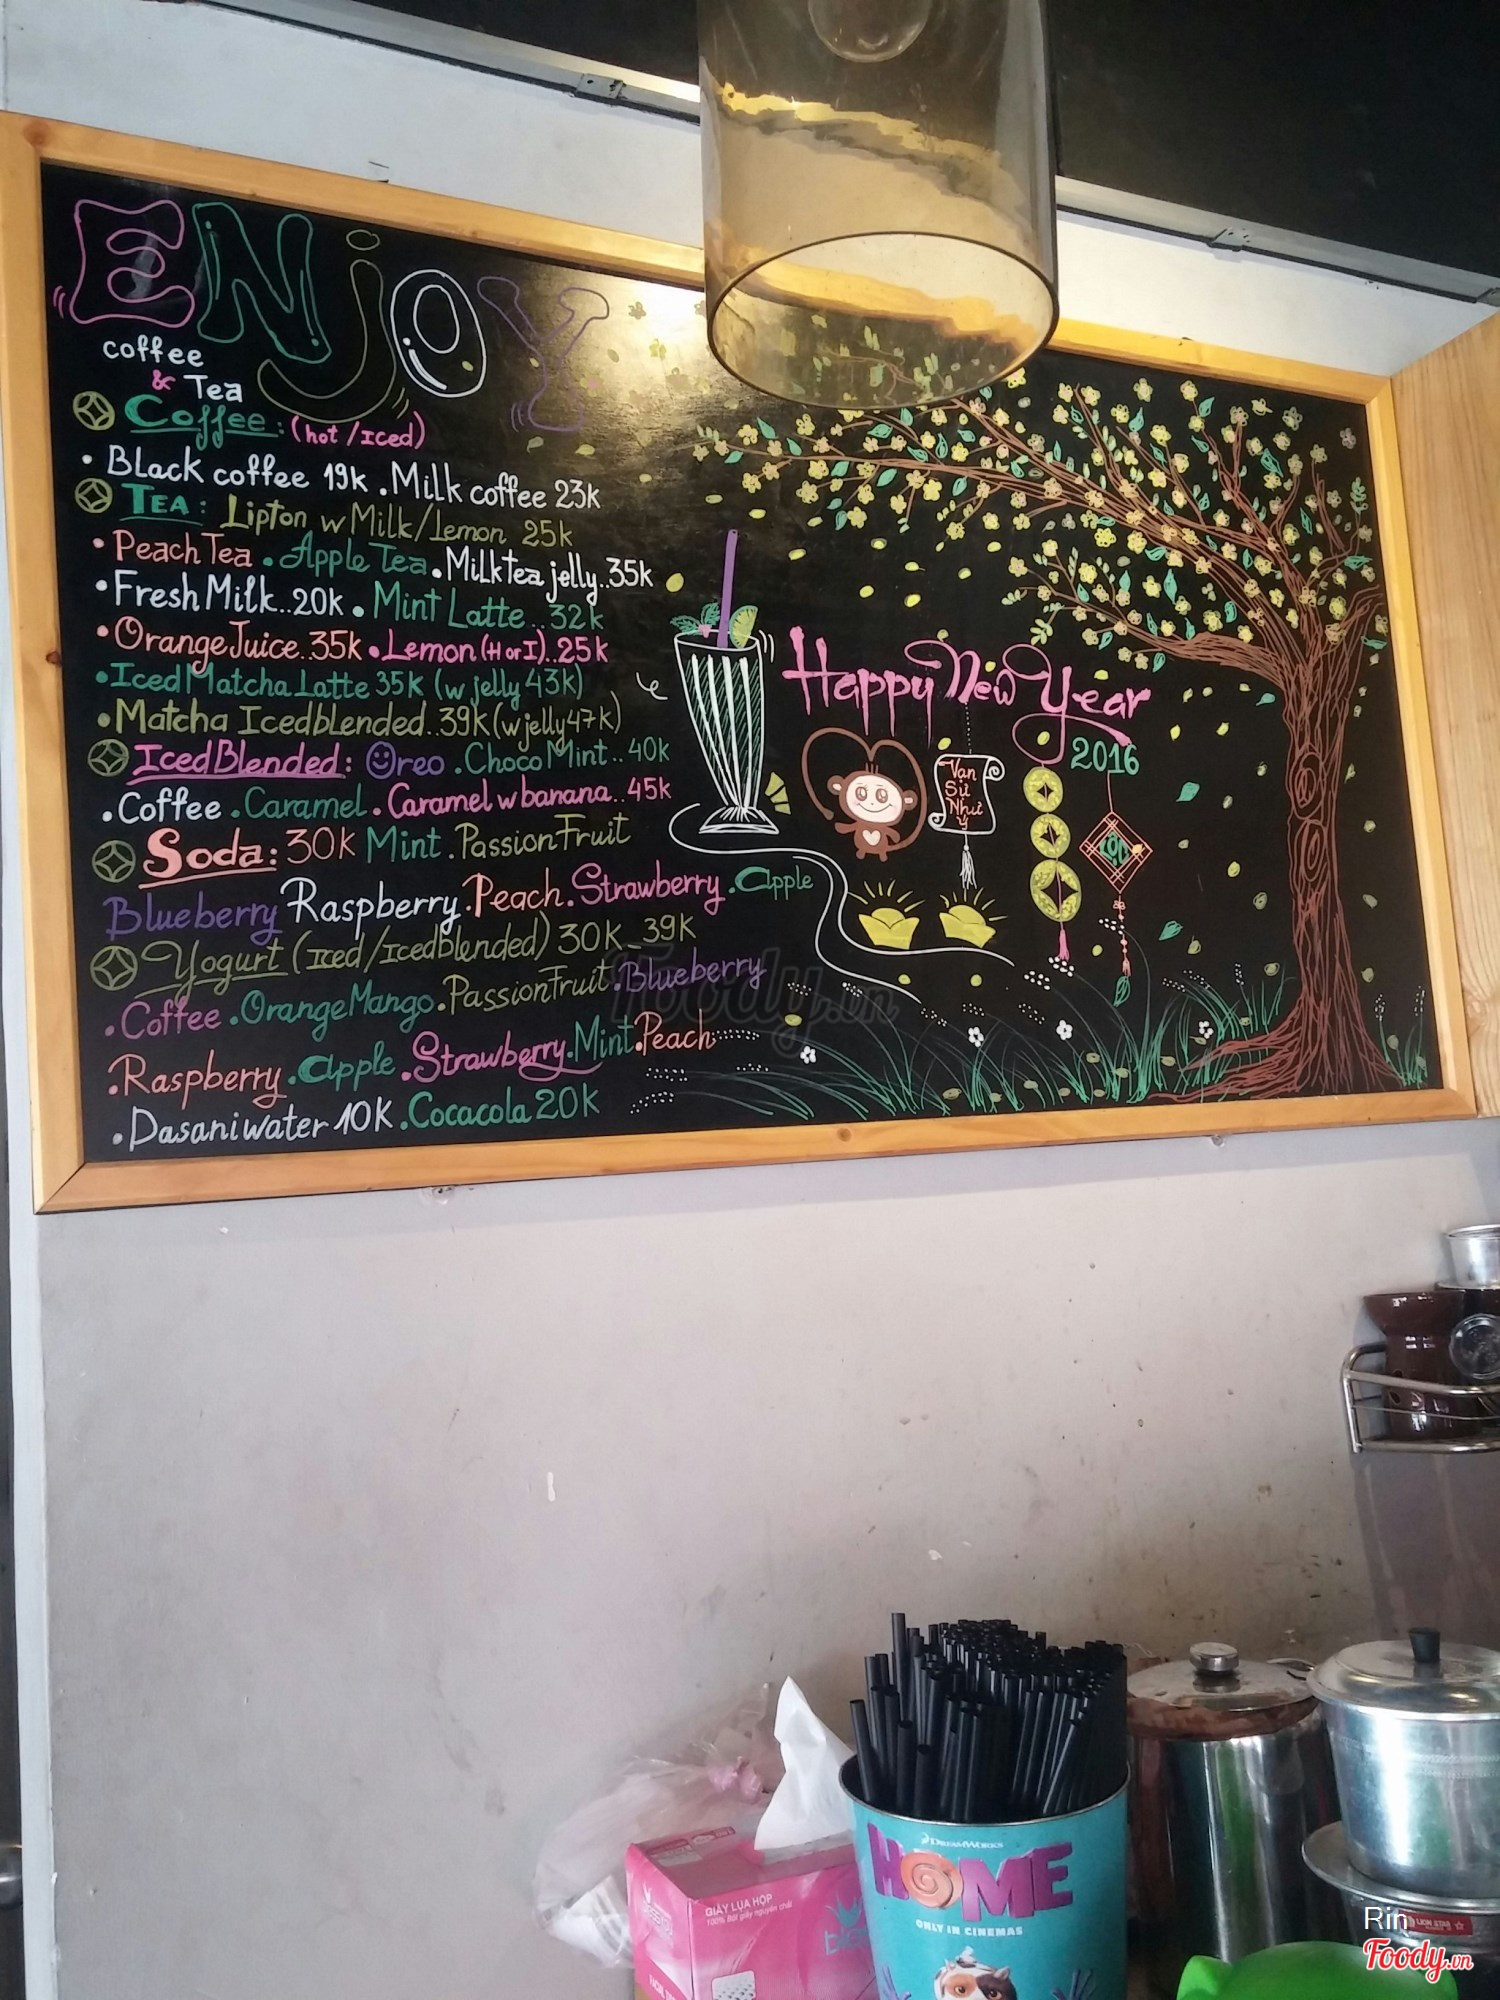 ENJOY
coffee
& Tea
Coffee: (hot/Iced)
• Black coffee 19k . Milk coffee 23k
TEA: Lipton w Milk/Lemon 25k
• Peach Tea . Apple Tea . Milktea jelly..35k
• Fresh Milk..20k . Mint Latte...32k
• Orange Juice..35k • Lemon (H or I)..25k
• Iced Matcha Latte 35k (w jelly 43k)
• Matcha Icedblended..39k (w jelly 47k)
Iced Blended: Oreo . Choco Mint..40k
. Coffee . Caramel . Caramel w banana..45k
Soda: 30k Mint . Passion Fruit
Blueberry Raspberry . Peach . Strawberry . apple
Yogurt (Iced/Icedblended) 30k_39k
. Coffee . Orange Mango . Passion Fruit . Blueberry
. Raspberry . apple . Strawberry . Mint . Peach
. Dasani water 10k . Cocacola 20k
Happy New Year
2016
Vạn
Sự
Như
Ý
LỘC
Foody.vn
DREAMWORKS
HOME
ONLY IN CINEMAS
GIẤY LỤA HỘP
100% Bột giấy nguyên chất
LION STAR
Rin
Foody.vn